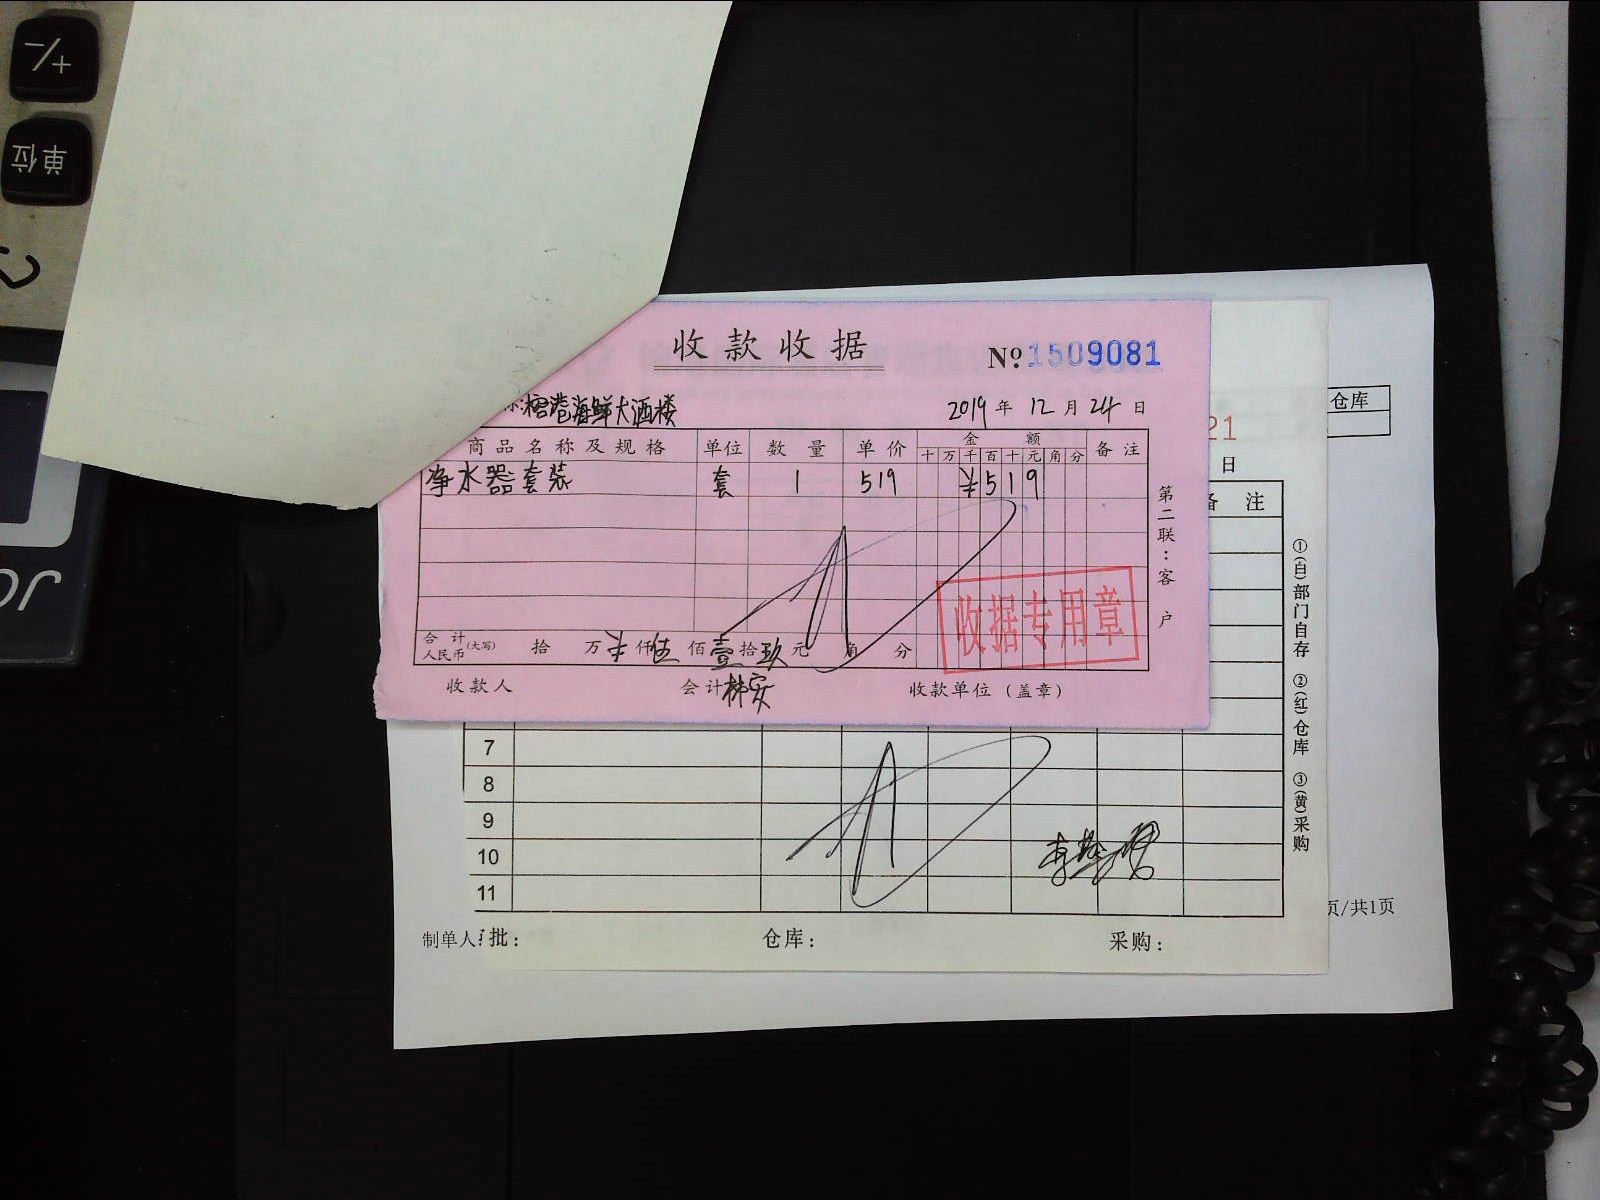 +/−
单位
收款收据
№ 1509081
榕港海鲜大酒楼 2019 年 12 月 24 日
商品名称及规格 单位 数量 单价 金额 备注
十 万 千 百 十 元 角 分
净水器套装 套 1 519 ¥519
第二联：客户
收据专用章
合计人民币(大写) 拾 万 ¥ 仟 伍 佰 壹 拾 玖 元 角 分
收款人 会计 林安 收款单位（盖章）
仓库
21
日
备注
7
8
9
10
11
①(白)部门自存 ②(红)仓库 ③(黄)采购
页/共1页
制单人: 批： 仓库： 采购：